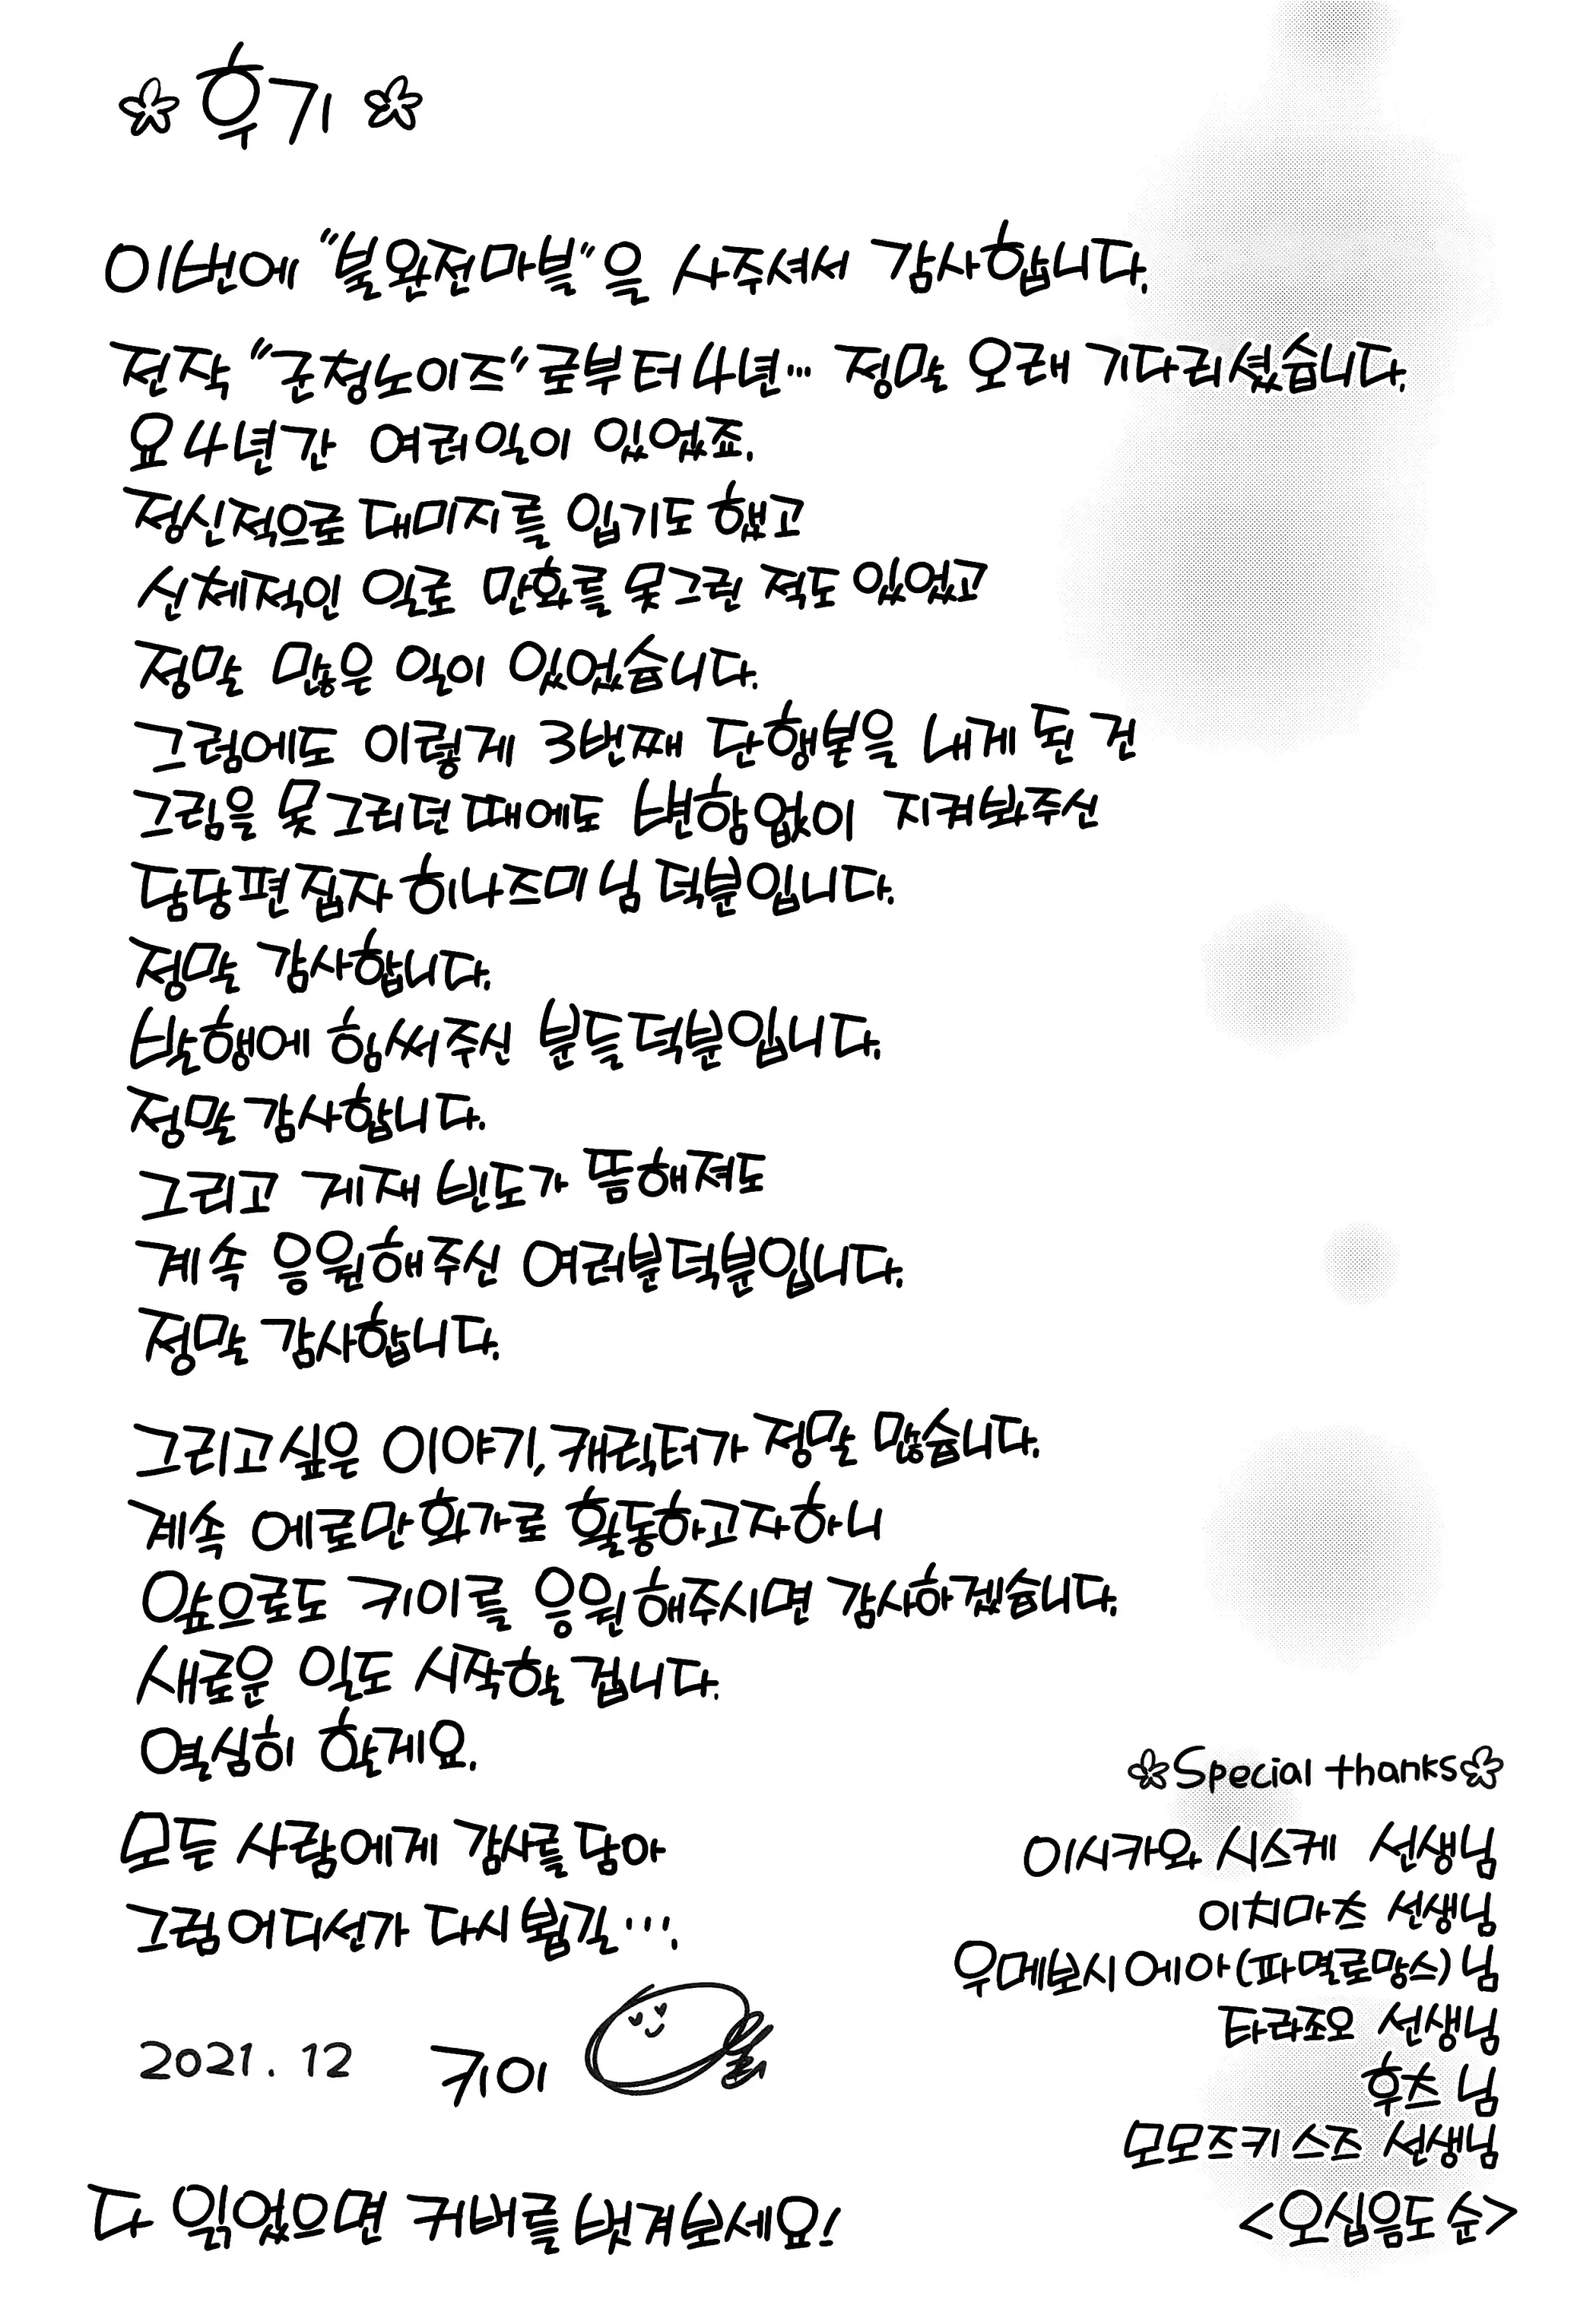 후기
이번에 "불완전마블"을 사주셔서 감사합니다.
전작 "군청노이즈"로부터 4년… 정말 오래 기다리셨습니다.
요 4년간 여러일이 있었죠.
정신적으로 대미지를 입기도 했고
신체적인 일로 만화를 못그린 적도 있었고
정말 많은 일이 있었습니다.
그럼에도 이렇게 3번째 단행본을 내게 된 건
그림을 못그리던 때에도 변함없이 지켜봐주신
담당편집자 히나즈미님 덕분입니다.
정말 감사합니다.
발행에 힘써주신 분들덕분입니다.
정말 감사합니다.
그리고 게재 빈도가 뜸해져도
계속 응원해주신 여러분덕분입니다.
정말 감사합니다.
그리고싶은 이야기, 캐릭터가 정말 많습니다.
계속 에로만화가로 활동하고자하니
앞으로도 키이를 응원해주시면 감사하겠습니다.
새로운 일도 시작할 겁니다.
열심히 할게요.
모든 사람에게 감사를 담아
그럼 어디선가 다시 뵙길….
2021. 12 키이
다 읽었으면 커버를 벗겨보세요!
Special thanks
이시카와 시스케 선생님
이치마츠 선생님
우메보시에아(파멸로망스)님
타라죠오 선생님
후츠님
모모즈키 스즈 선생님
<오십음도 순>